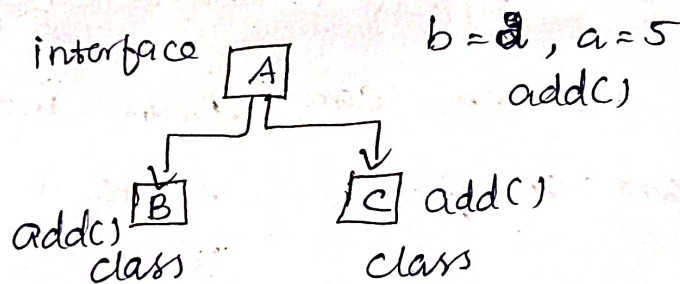 interface
A
b = 2, a = 5
add()
B
add()
class
C
add()
class